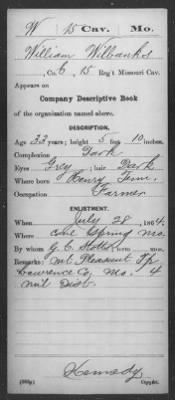 W 15 Cav. Mo.
William Wilbanks
, Co. C, 15 Reg't Missouri Cav.
Appears on
Company Descriptive Book
of the organization named above.
DESCRIPTION.
Age 33 years; height 5 feet 10 inches.
Complexion Dark
Eyes Grey; hair Dark
Where born Henry, Tenn.
Occupation Farmer
ENLISTMENT.
When July 28, 1864.
Where Cave Spring Mo.
By whom ; term mos.
Remarks: Mt. Pleasant Tp
Lawrence Co, Mo. 4
mil Dist.
Kennedy
Copyist.